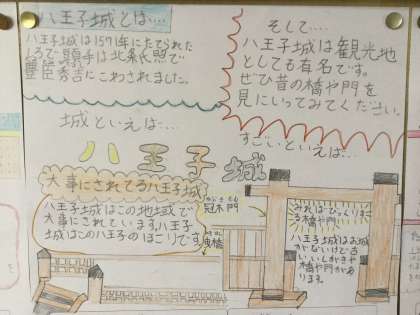 八王子城とは…
八王子城は1571年にたてられた
しろで、願手は北条氏照で
豊臣秀吉にこわされました。
そして…
八王子城は観光地
としても有名です。
ぜひ昔の橋や門を
見にいってみてください。
城といえば…
すごいといえば…
八王子城
大事にされてる八王子城
八王子城はこの地域で
大事にされています。八王子
城はこの八王子のほこりです。
冠木門
曳橋
みればびっくりほこ
る橋や門
八王子城はお城
がないけど古
いいしがきや
橋や門があ
ります。